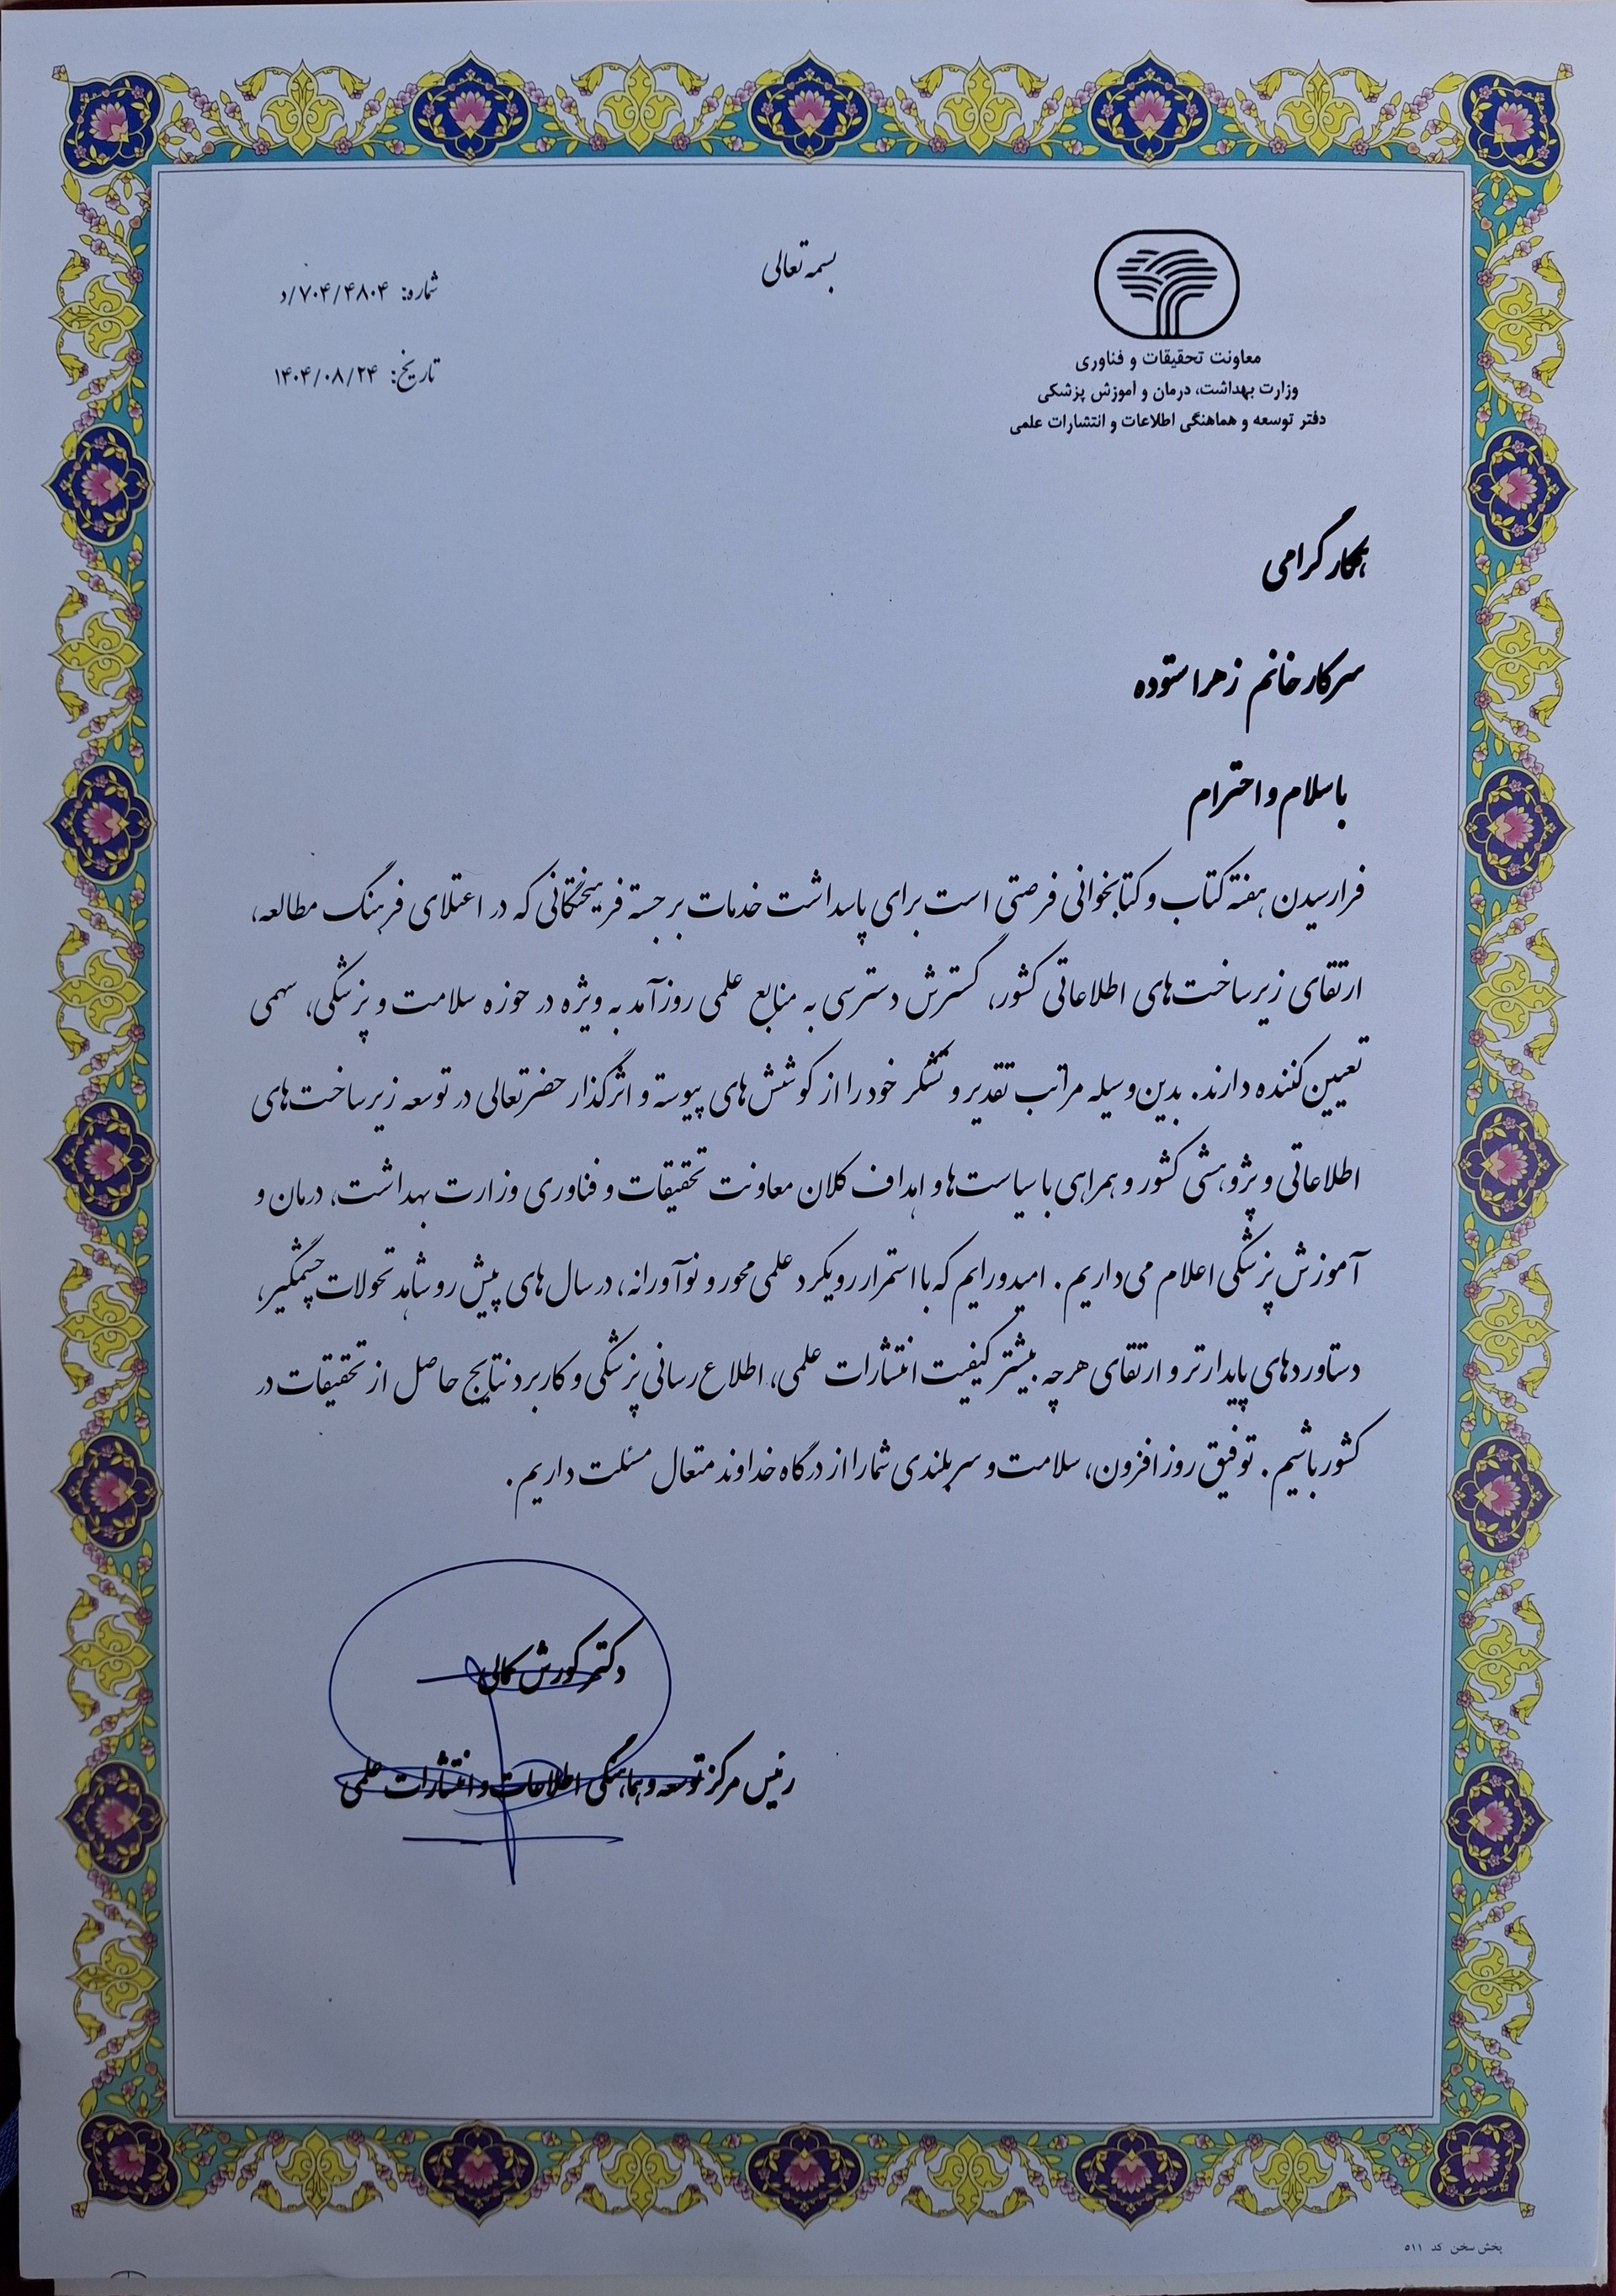 بسمه تعالی
شماره: ۷۰۴/۴۸۰۴/د
تاریخ: ۱۴۰۴/۰۸/۲۴
معاونت تحقیقات و فناوری
وزارت بهداشت، درمان و آموزش پزشکی
دفتر توسعه و هماهنگی اطلاعات و انتشارات علمی
همکار گرامی
سرکار خانم زهرا ستوده
با سلام و احترام
فرارسیدن هفته کتاب و کتابخوانی فرصتی است برای پاسداشت خدمات برجسته فرهیختگانی که در اعتلای فرهنگ مطالعه،
ارتقای زیرساخت‌های اطلاعاتی کشور، گسترش دسترسی به منابع علمی روزآمد به ویژه در حوزه سلامت و پزشکی، سهمی
تعیین‌کننده دارند. بدین‌وسیله مراتب تقدیر و تشکر خود را از کوشش‌های پیوسته و اثرگذار حضرتعالی در توسعه زیرساخت‌های
اطلاعاتی و پژوهشی کشور و همراهی با سیاست‌ها و اهداف کلان معاونت تحقیقات و فناوری وزارت بهداشت، درمان و
آموزش پزشکی اعلام می‌داریم. امیدورایم که با استمرار رویکرد علمی محور و نوآورانه، در سال های پیش رو شاهد تحولات چشمگیر،
دستاوردهای پایدارتر و ارتقای هرچه بیشتر کیفیت انتشارات علمی، اطلاع رسانی پزشکی و کاربرد نتایج حاصل از تحقیقات در
کشور باشیم. توفیق روزافزون، سلامت و سربلندی شما را از درگاه خداوند متعال مسئلت داریم.
دکتر کورش کمالی
رئیس مرکز توسعه و هماهنگی اطلاعات و انتشارات علمی
پخش سخن کد ۵۱۱